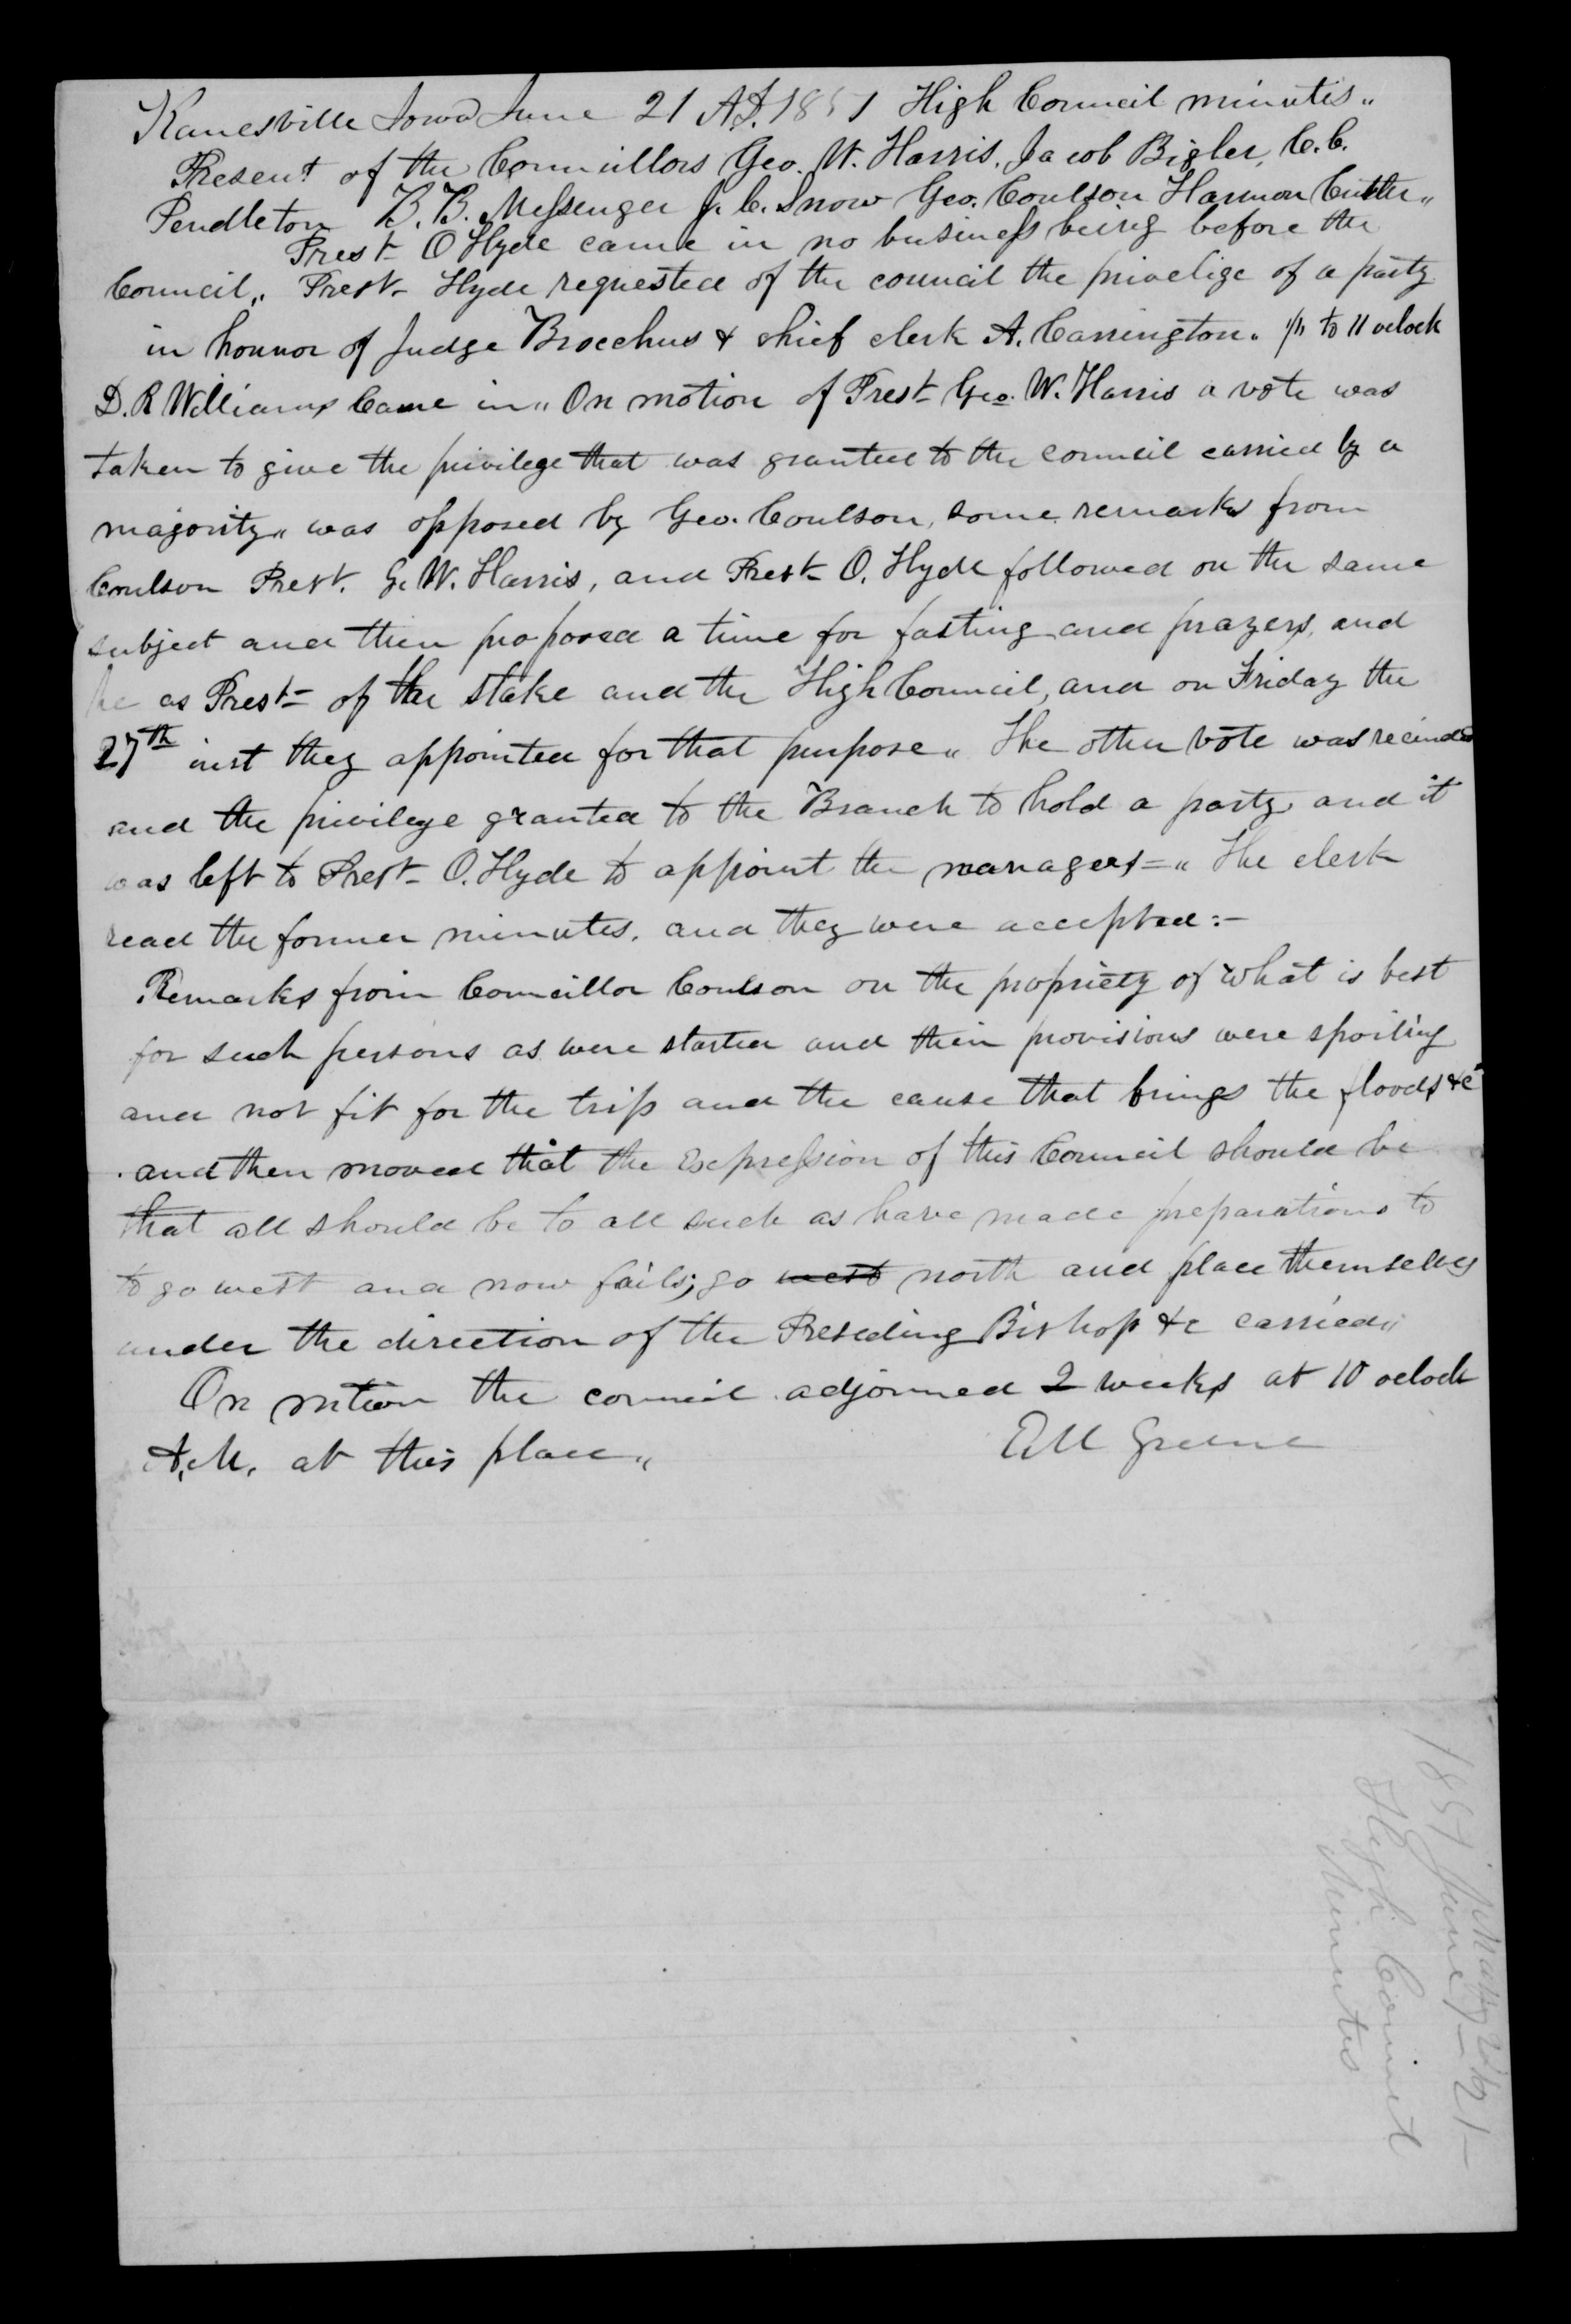 Kanesville Iowa June 21 A.D. 1851 High Council minutes "
Present of the Councillors Geo. W. Harris, Jacob Bigler, C. C.
Pendleton B. B. Messenger J. C. Snow Geo. Coulson Harmon Cutler "
Prest- O Hyde came in no business being before the
Council " Prest- Hyde requested of the council the privelige of a party
in honnor of Judge Brocchus & chief clerk A. Carrington " to 11 oclock
D. R Williams Came in " On motion of Prest- Geo. W. Harris a vote was
taken to give the privilege that was granted to the council carried by a
majority " was opposed by Geo. Coulson, some remarks from
Coulson Prest. G. W. Harris, and Prest- O. Hyde followed on the same
subject and then proposed a time for fasting and prayers, and
he as Prest- of the Stake and the High Council, and on Friday the
27th inst they appointed for that purpose " The other vote was recinded
and the privilege granted to the Branch to hold a party and it
was left to Prest- O. Hyde to appoint the managers = " The clerk
read the former minutes, and they were accepted :-
Remarks from Councillor Coulson on the propriety of what is best
for such persons as were started and their provisions were spoiling
and not fit for the trip and the cause that brings the floods &c
and then moved that the Expression of this Council should be
that all should be to all such as have made preparations to
to go west and now fails; go west north and place themselves
under the direction of the Preseding Bishop &c carried "
On motion the council adjorned 2 weeks at 10 oclock
A.M. at this place "
E M Greene
1851 June 21-
High Council
Minutes